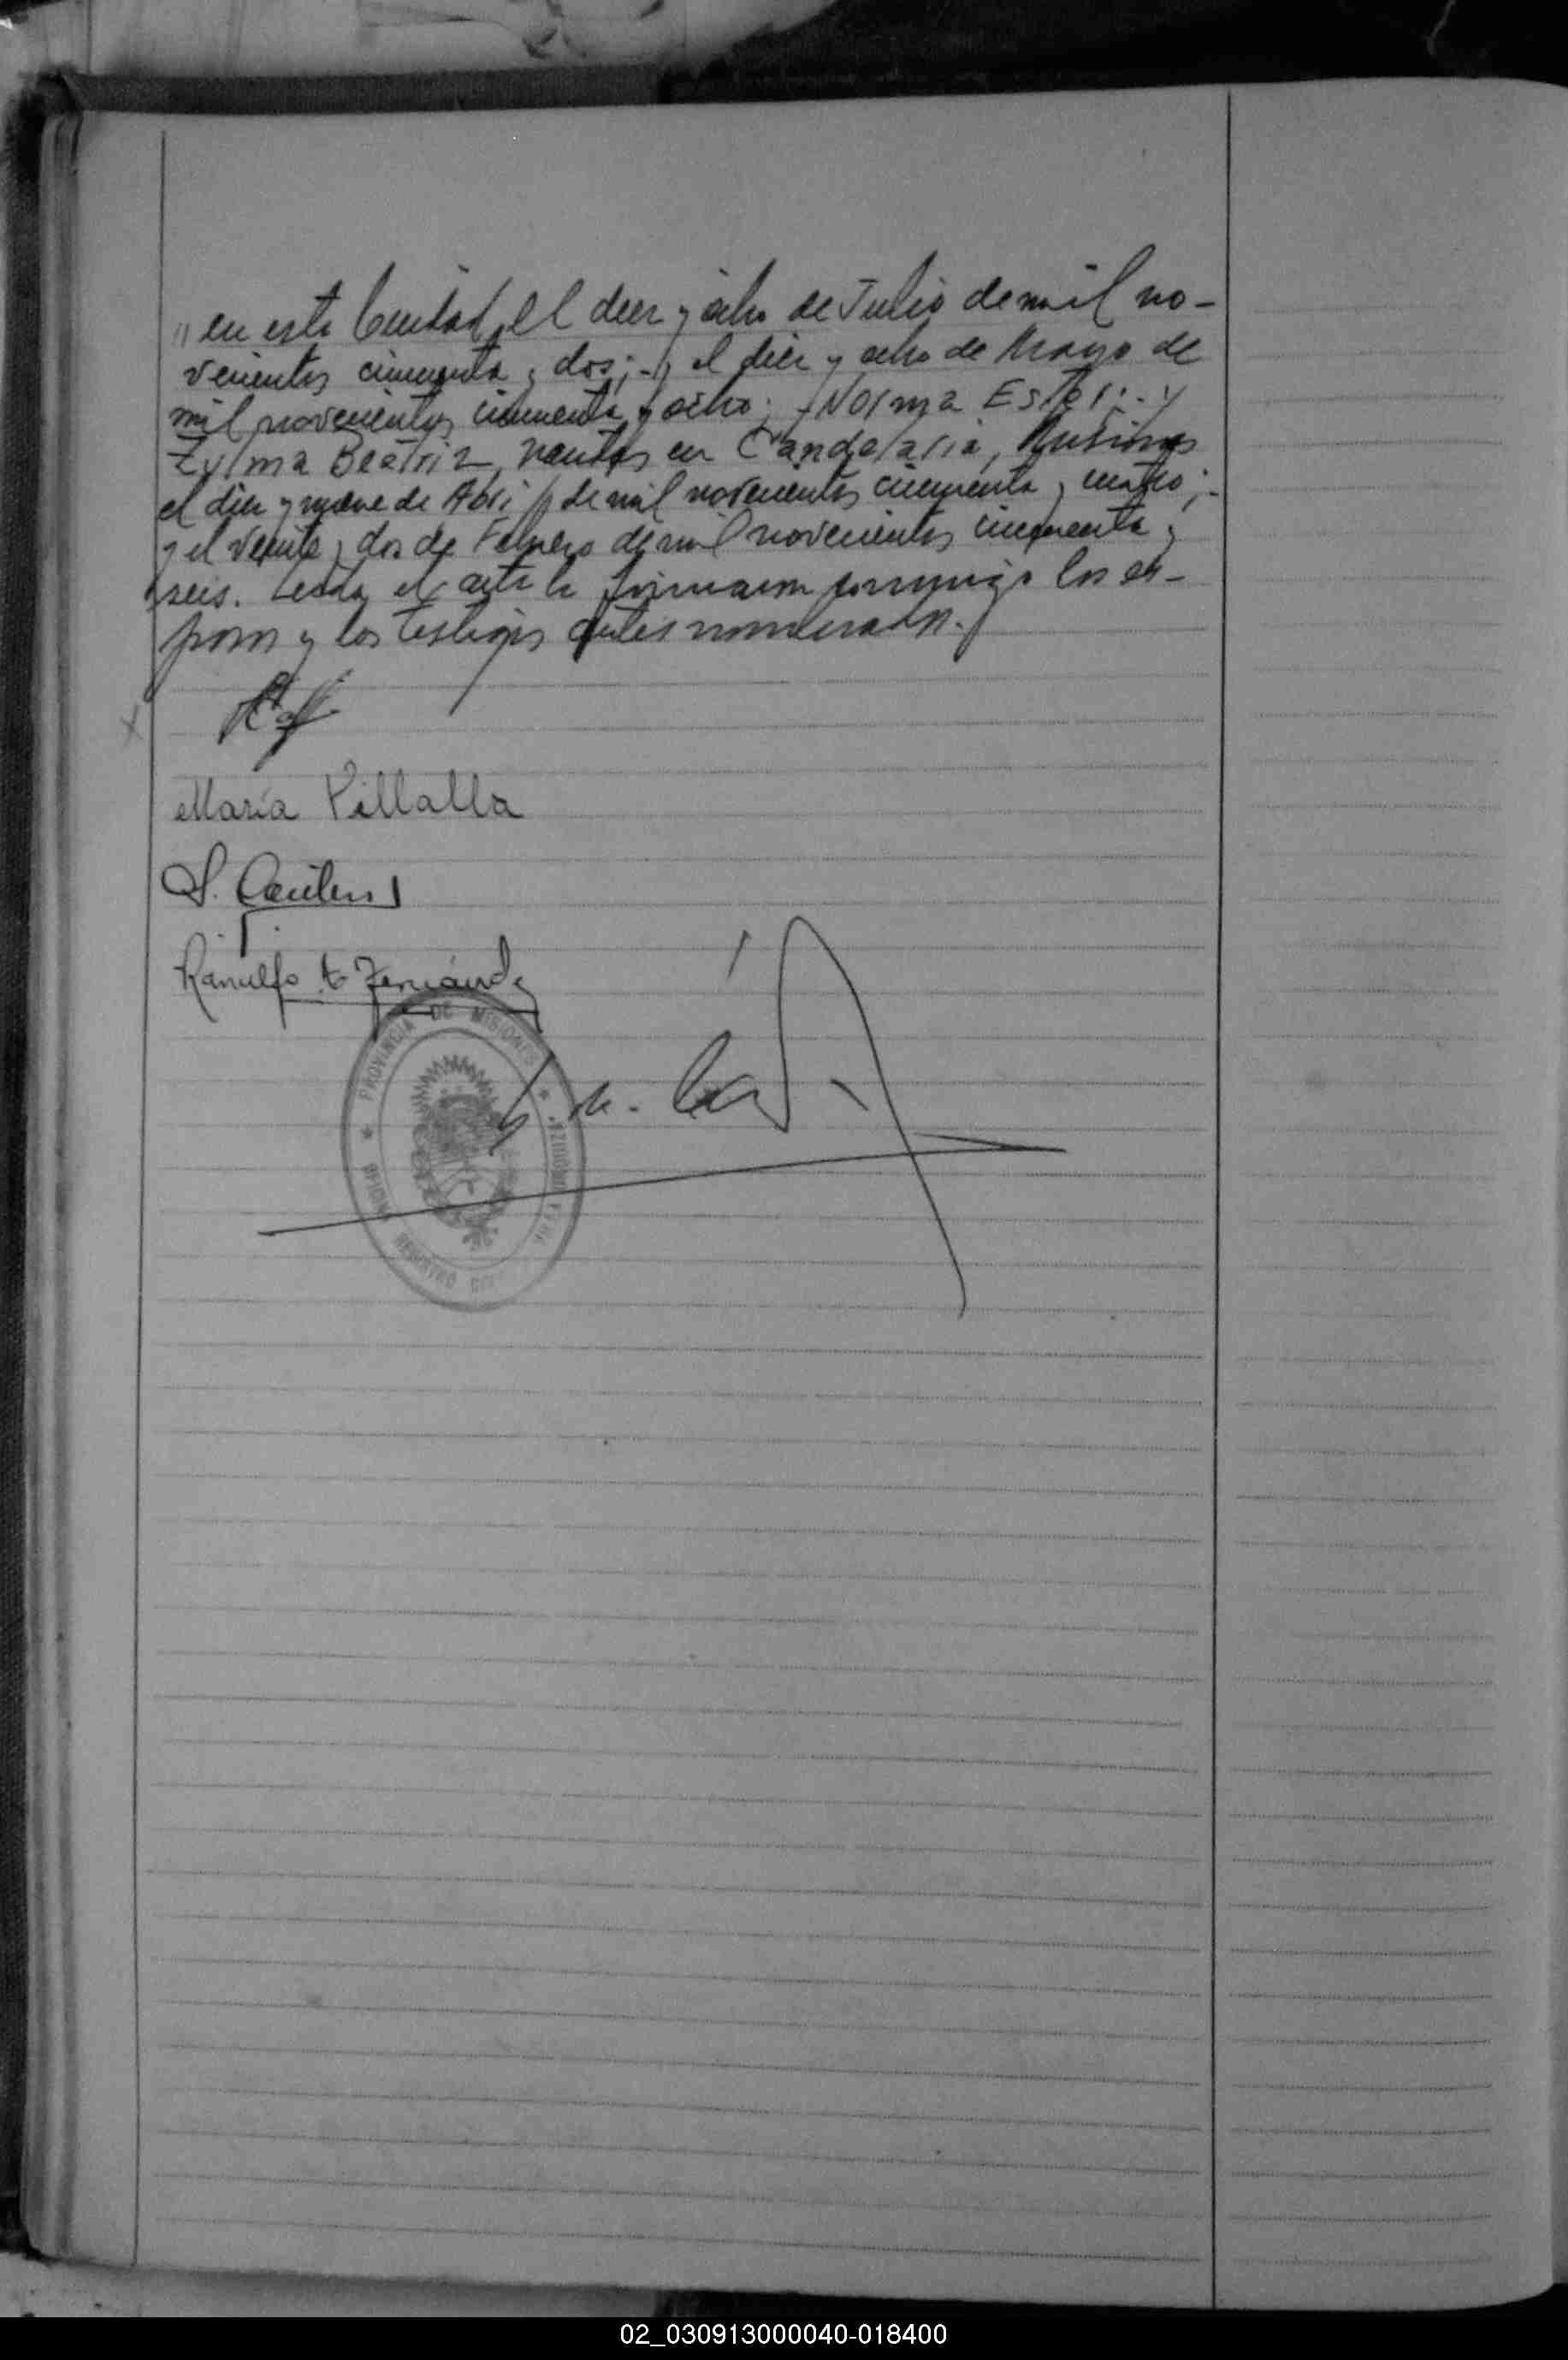 " en esta Ciudad, el diez y ocho de Julio de mil no-
vecientos cincuenta y dos;- y el diez y ocho de Mayo de
mil novecientos cincuenta y ocho; y Norma Ester;- y
Zylma Beatriz, nacidas en Candelaria, Misiones
el diez y nueve de Abril de mil novecientos cincuenta y cuatro;-
y el veinte y dos de Febrero de mil novecientos cincuenta y
seis. Leída el acta la firmaron conmigo los es-
posos y los testigos antes nombrados.-
María Villalba
Ranulfo Fernández
PROVINCIA DE MISIONES
OFICINA REGISTRO
02_030913000040-018400